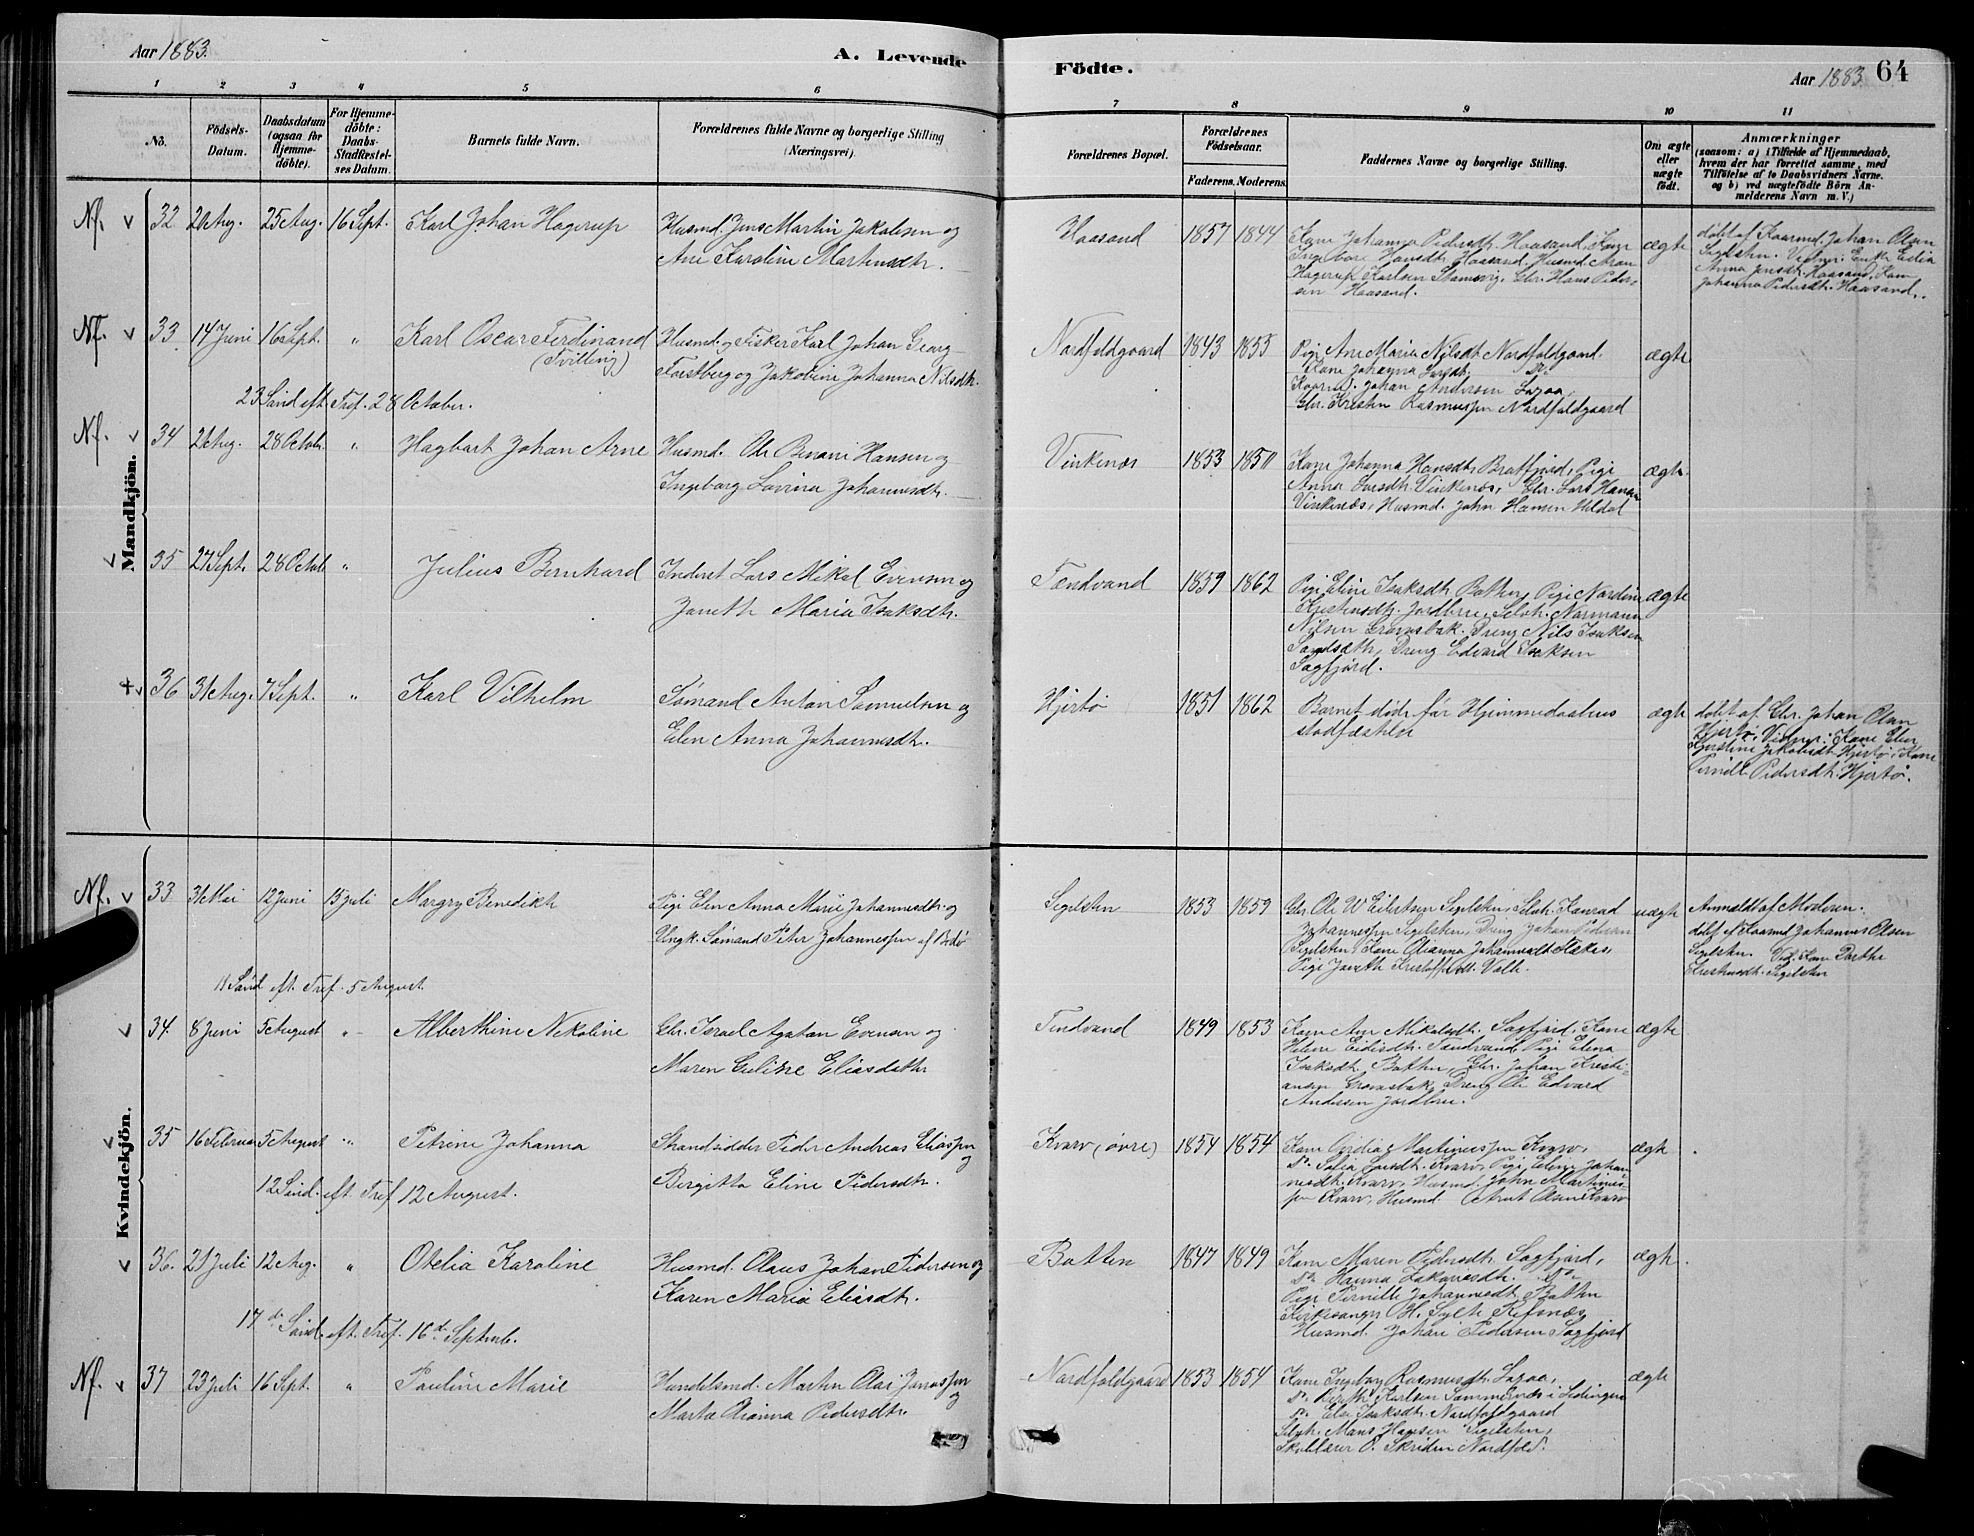 Aar 1883.
A. Levende Födte.
Aar 1883
64
1 2 3 4 5 6 7 8 9 10 11
No.
Födsels-
Datum.
Daabsdatum
(ogsaa for
Hjemme-
döbte).
For Hjemme-
döbte:
Daabs-
Stadfæstel-
ses Datum.
Barnets fulde Navn.
Forældrenes fulde Navne og borgerlige Stilling
(Næringsvei).
Forældrenes Bopæl.
Forældrenes
Födselsaar.
Faderens. Moderens.
Faddernes Navne og borgerlige Stilling.
Om ægte
eller
uægte
födt.
Anmærkninger
(saasom: a) i Tilfælde af Hjemmedaab,
hvem der har forrettet samme, med
Tilföielse af to Daabsvidners Navne.
og b) ved uægtefödte Börn An-
melderens Navn m. V.)
Mandkjön.
Nf. 32 2 Aug. 25 Aug. 16 Sept. Karl Johan Hagerup
Husmd. Jens Martin Jakobsen og
Ane Karoline Martinsdtr.
Haasand 1857 1844
Kone Johanna Pedersdtr. Haasand, Kone
Ingeborg Hansdtr. Haasand, Husmd. Aron
Hagerup Karlsen, Gbr. Hans Peder-
sen Haasand.
ægte
döbt af Kaarmd. Johan Olsen
Segelsten. Vidner: Enke
Anna Haasand, Kone
Johanna Pedersdtr. Haasand.
Nf. 33 14 Juni 16 Sept. " Karl Oscar Ferdinand
(Tvilling)
Husmd. og Fisker Karl Johan Georg
Forstberg og Jakobine Johanna Nilsdtr.
Nordfoldgaard 1843 1855
Pige Ane Maria Nilsdtr. Nordfoldgaard.
Kone Johanna
Kaarmd. Johan Andersen
Gbr. Kristen Rasmussen Nordfoldgaard
ægte
23 Sönd. eft. Tref. 28 October.
Nf. 34 2 Aug. 28 Octob. " Hagbart Johan Arne
Husmd. Ole Benoni Hansen og
Ingeborg Lovina Johannesdtr.
Vinkenes 1853
Kone Johanna Hansdtr. Bratfjord, Pige
Anna Larsdtr. Vinkenæs, Gbr. Lars Hansen
Vinkenæs, Husmd. John Hansen
ægte.
35 27 Sept. 28 Octob. " Julius Bernhard
Inderst Lars Mikal Evensen og
Janeth Maria Isaksdtr.
Tændvand 1859 1862
Pige Eline Isaksdtr. Botten, Pige Nordine
Kristensdtr. Jordbru, Selvh. Normann
Nilsen Gromsbak, Dreng Nils Isaksen
Dreng Edvard Isaksen
Sagfjord.
ægte
36 31 Aug. 7 Sept. " Karl Vilhelm
Sömand Anton Samuelsen og
Elen Anna Johannesdtr.
Hjertö 1851 1862
Barnet döde för Hjemmedaabens
stadfæstelse
ægte
döbt af Gbr. Johan Olsen
Hjertö, Vidner: Kone Elen
Kjerstine Jakobsdtr. Hjertö, Kone
Pernille Pedersdtr. Hjertö.
Kvindekjön.
Nf. 33 31 Mai 12 Juni 15 Juli Margry Benedikte
Pige Elen Anna Marie Johannesdtr. og
Ungk. Sömand Peter Johannessen af Bodö
Segelsten 1853 1859
Gbr. Ole W Eilertsen Segelsten, Selvh. Konrad
Johannessen Segelsten, Dreng Johan Pedersen
Segelsten, Kone Olianna Johannesdtr.
Pige Janeth Kristoffersdtr.
uægte
Anmeldt af Moderen.
döbt af Kaarmd. Johannes Olsen
Segelsten. Kone Dorthe
Kristensdtr. Segelsten
11 Sönd. eft. Tref. 5 August.
34. 8 Juni 5 August " Alberthine Nikoline
Gbr. Israel Agatan Evensen og
Maren Gurine Eliasdatter
Tendvand 1849 1853
Kone Ane Mikalsdtr. Sagfjord, Kone
Helene Tendvand, Pige Elena
Isaksdtr. Botten, Gbr. Johan Kristi-
ansen Gromsbak, Dreng Ole Edvard
Andersen Jordbru.
ægte
35 16 Februar 5 August " Petrine Johanna
Strandsidder Peder Andreas Eliassen
og
Birgitta Eline Pedersdtr.
Kvarv (övre) 1854 1854
Kone Martinussen Kvarv,
do. Sofia Larsdtr. Kvarv, Pige Elen Johan-
nesdtr. Kvarv, Husmd. John Martinus-
sen Kvarv, Husmd. Arnt Olsen Kvarv
ægte
12 Sönd. eft. Tref. 12 August.
36. 21 Juli 12 Aug. " Otelia Karoline
Husmd. Olaus Johan Pedersen og
Karen Maria Eliasdtr.
Botten 1847 1849
Kone Maren Pedersdtr. Sagfjord,
do. Hanna Zakariasdtr. do.
Pige Pernille Johannesdtr. Botten
Kirkesanger H. Sylte Refsnæs
Husmd. Johan Pedersen Sagfjord
ægte.
17de Sönd. eft. Tref. 16de Septemb.
Nf. 37 23 Juli 16 Sept. " Pauline Marie
Handelsmd. Martin Olai Jonassen
og
Marta Olianna Pedersdtr.
Nordfoldgaard 1853 1854
Kone Ingeborg Rasmusdtr.
do. Karlsen Sommernes i Lödingen
do. Else Isaksdtr. Nordfoldgaard
Selvh. Mons Hansen Segelsten,
Skolelærer O. Skriden Nordfold.
ægte